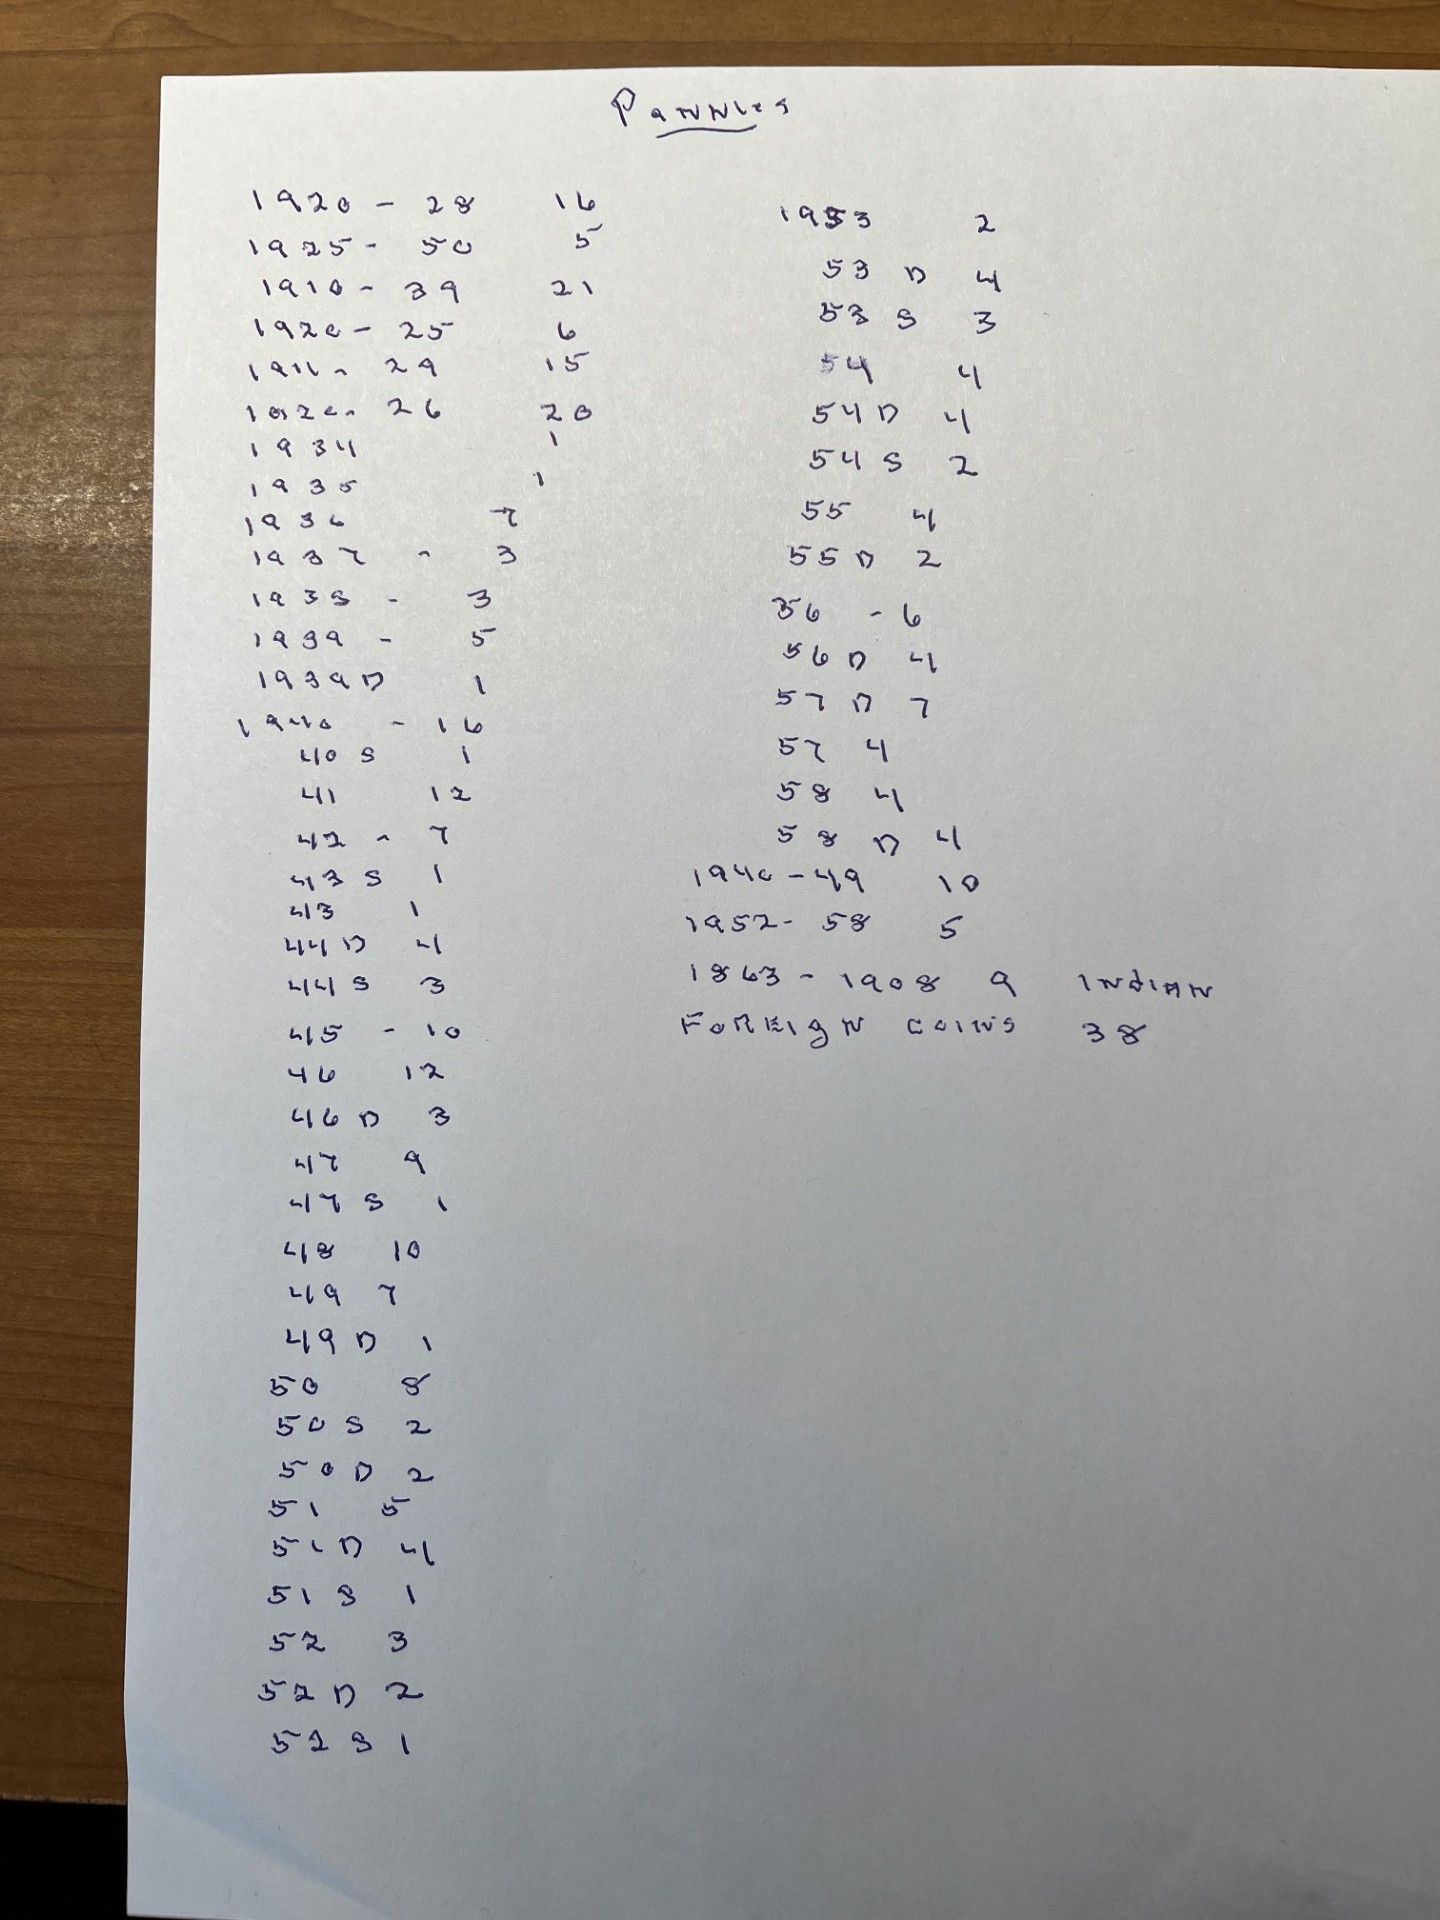 Pannies
1920 - 28 16
1925 - 50 5
1910 - 39 21
1920 - 25 6
1911 - 29 15
1920 - 26 20
1934 1
1935 1
1936 7
1937 - 3
1938 - 3
1939 - 5
1939D 1
1940 - 16
40 S 1
41 12
42 - 7
43 S 1
43 1
44 D 4
44 S 3
45 - 10
46 12
46 D 3
47 9
47 S 1
48 10
49 7
49 D 1
50 8
50 S 2
50 D 2
51 5
51 D 4
51 S 1
52 3
52 D 2
52 S 1
1953 2
53 D 4
53 S 3
54 4
54 D 4
54 S 2
55 4
55 D 2
56 - 6
56 D 4
57 D 7
57 4
58 4
58 D 4
1940 - 49 10
1952 - 58 5
1863 - 1908 9 INDIAN
FOREIgN COINS 38